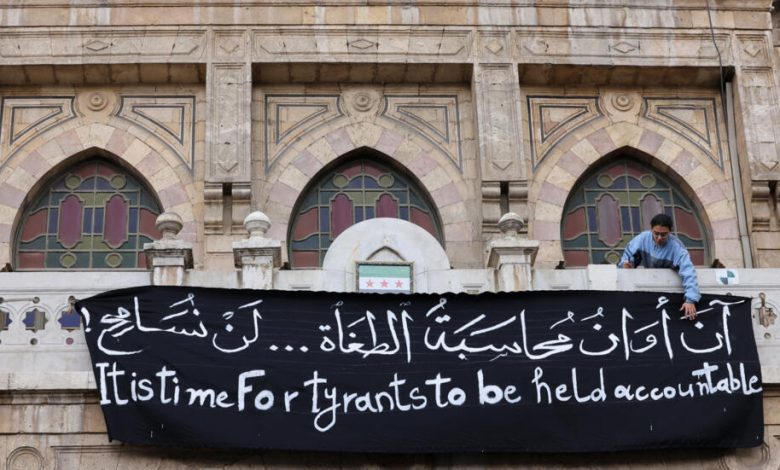 آنَ أوَانُ مُحاسَبَةُ الطُغَاة... لَنْ نُسَامِح!
It is time For tyrants to be held accountable